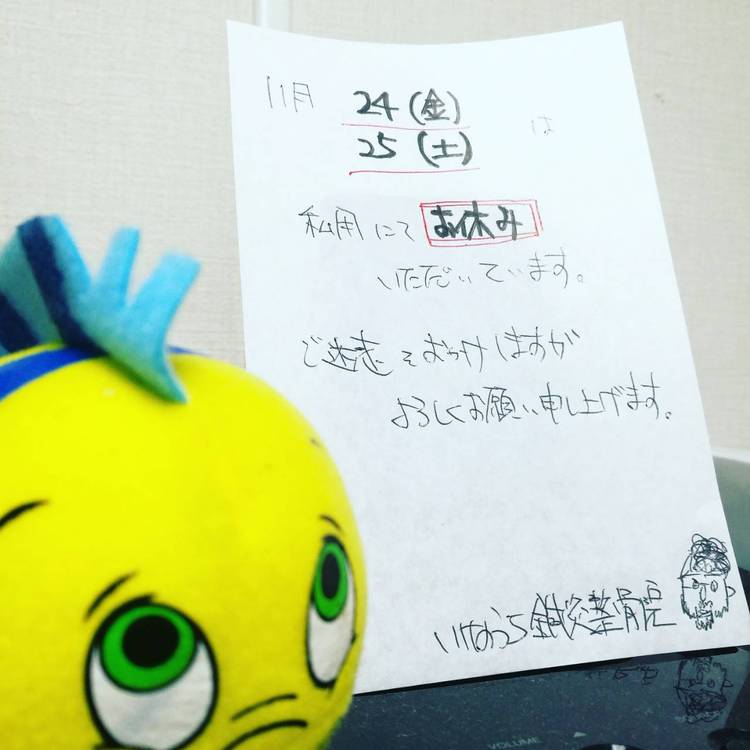 11月 24(金)
25(土) は
私用にて お休み
いただいています。
ご迷惑をおかけしますが
よろしくお願い申し上げます。
鍼灸整骨院
VOLUME